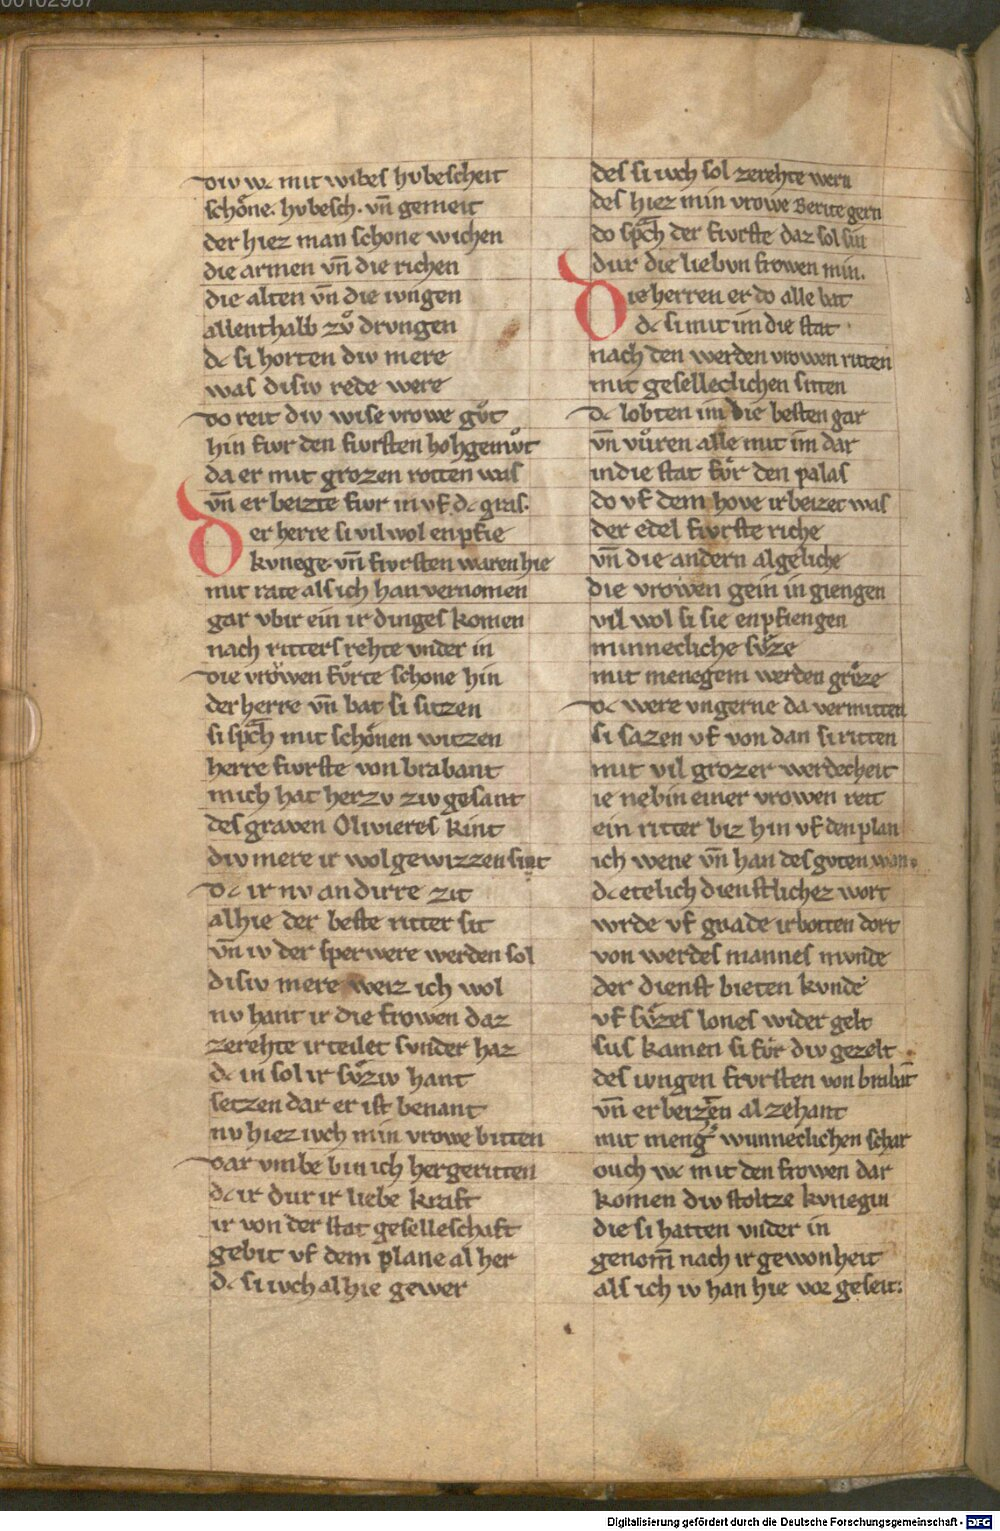 00102987
div wc mit wibes hvbescheit
schoͤne. hvbesch. vn̄ gemeit
der hiez man schone wichen
die armen vn̄ die richen
die alten vn̄ die ivngen
allenthalb zvͦ drvngen
dc si horten div mere
was disiv rede were
do reit div wise vrowe gvͦt
hin fivr den fivrsten hohgemvͦt
da er mit grozen rotten was
vn̄ er beizte fivr in vf dc gras.
Der herre si vil wol enpfie
kvnege. vn̄ fivrsten waren hie
mit rate als ich han vernomen
gar vbir ein ir dinges komen
nach ritters rehte vnder in
die vroͮwen fvͦrte schone hin
der herre vn̄ bat si sitzen
si spͣch mit schoͤnen witzen
herre fivrste von brabant
mich hat herzv ziv gesant
des graven Olivieres kint
div mere ir wol gewizzen sint
dc ir nv an dirre zit
al hie der beste ritter sit
vn̄ iv der sperwere werden sol
disiv mere weiz ich wol
nv hant ir die frowen daz
zerehte irteilet svnder haz
dc in sol ir svͤziv hant
setzen dar er ist benant
nv hiez ivch min vrowe bitten
dar vmbe bin ich hergeritten
dc ir dur ir liebe kraft
ir von der stat geselleschaft
gebit vf dem plane al her
dc si ivch al hie gewer
des si ivch sol zerehte wern
des hiez min vrowe Berite gern
do spͣch der fivrste daz sol sin
dur die liebvn frowen min.
Die herren er do alle bat
dc si mit im die stat
nach den werden vrowen ritten
mit geselleclichen sitten
dc lobten im die besten gar
vn̄ vuͦren alle mit im dar
in die stat fvͤr den palas
do vf dem hove irbeizet was
der edel fivrste riche
vn̄ die andern algeliche
die vrowen gein in giengen
vil wol si sie enpfiengen
minnecliche svͤze
mit menegem werden grvͤze
dc were vngerne da vermitten
si sazen vf von dan si ritten
mit vil grozer werdecheit
ie nebin einer vrowen reit
ein ritter biz hin vf den plan
ich wene vn̄ han des gvten wan.
dc etelich dienstlichez wort
wrde vf gnade irbotten dort
von werdes mannes mvnde
der dienst bieten kvnde
vf svͤzes lones wider gelt
sus kamen si fvͤr div gezelt
des ivngen fivrsten von brabāt
vn̄ erbeizten al zehant
mit meng̾ wunneclichen schar
ouch wc mit den frowen dar
komen div stoltze kvnegin
die si hatten vnder in
genom̄ nach ir gewonheit
als ich iv han hie vor geseit:
Digitalisierung gefördert durch die Deutsche Forschungsgemeinschaft - DFG